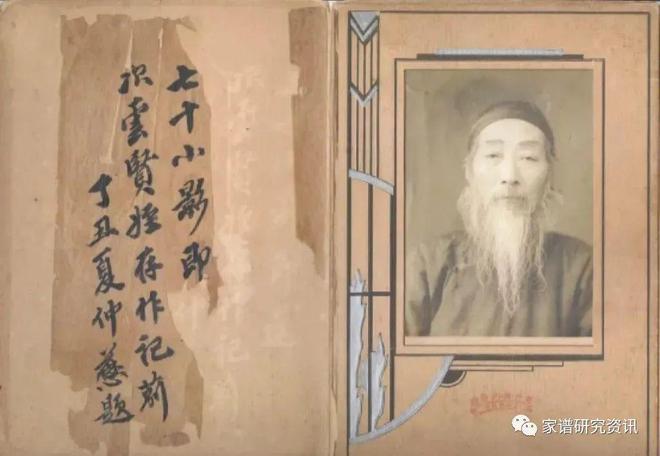 七十小影即
雲賢姪存作記
丁丑夏仲慈題
家谱研究资讯